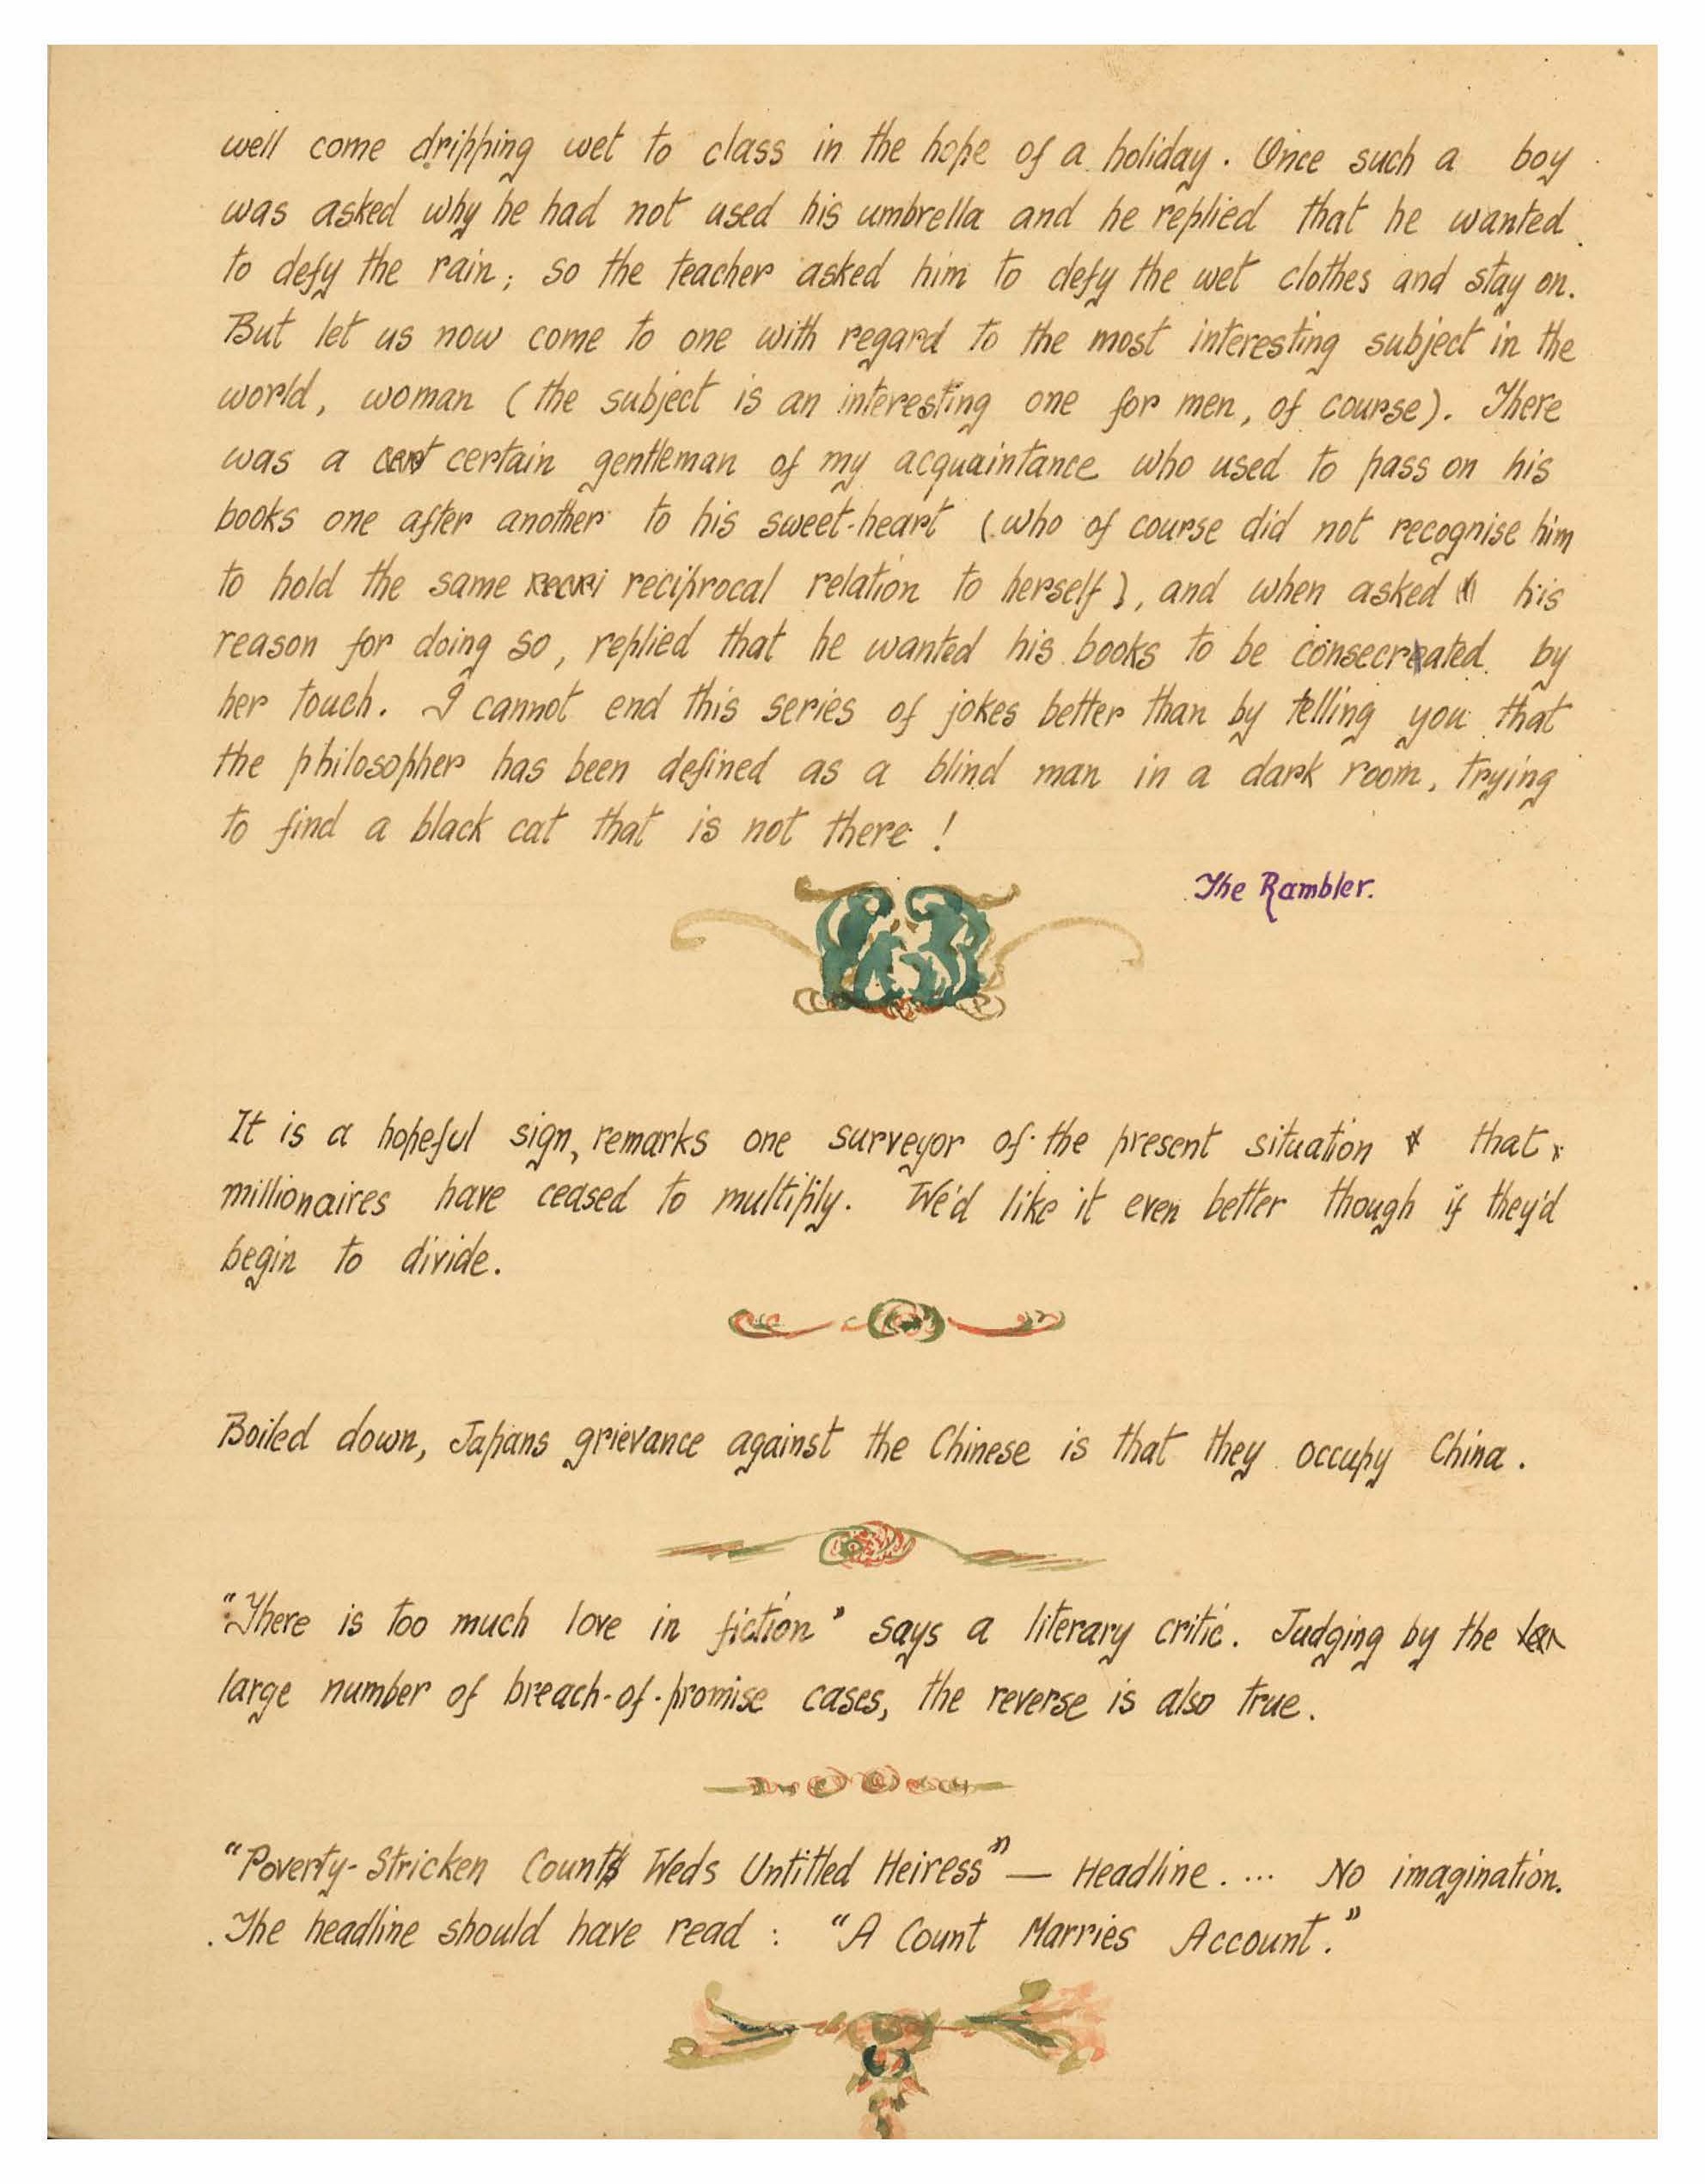 well come dripping wet to class in the hope of a holiday. Once such a boy
was asked why he had not used his umbrella and he replied that he wanted
to defy the rain; so the teacher asked him to defy the wet clothes and stay on.
But let us now come to one with regard to the most interesting subject in the
world, woman (the subject is an interesting one for men, of course). There
was a certain gentleman of my acquaintance who used to pass on his
books one after another to his sweet-heart (who of course did not recognise him
to hold the same reciprocal relation to herself), and when asked his
reason for doing so, replied that he wanted his books to be consecrated by
her touch. I cannot end this series of jokes better than by telling you that
the philosopher has been defined as a blind man in a dark room, trying
to find a black cat that is not there!
The Rambler.
It is a hopeful sign, remarks one surveyor of the present situation that
millionaires have ceased to multiply. We'd like it even better though if they'd
begin to divide.
Boiled down, Japans grievance against the Chinese is that they occupy China.
"There is too much love in fiction" says a literary critic. Judging by the
large number of breach-of-promise cases, the reverse is also true.
"Poverty-Stricken Count Weds Untitled Heiress" — Headline. ... No imagination.
The headline should have read: "A Count Marries Account."